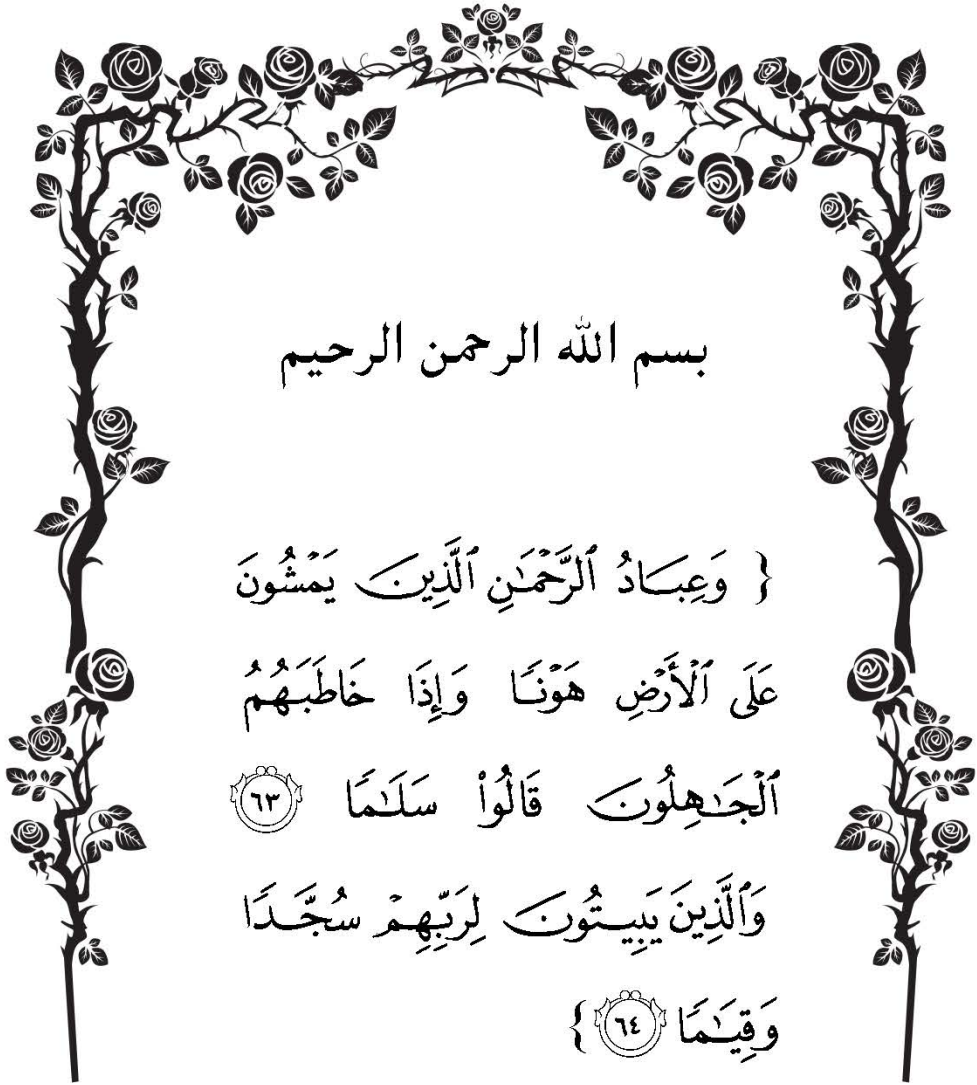 بسم الله الرحمن الرحيم
{ وَعِبَادُ ٱلرَّحْمَٰنِ ٱلَّذِينَ يَمْشُونَ
عَلَى ٱلْأَرْضِ هَوْنًا وَإِذَا خَاطَبَهُمُ
ٱلْجَٰهِلُونَ قَالُوا۟ سَلَٰمًا ٦٣
وَٱلَّذِينَ يَبِيتُونَ لِرَبِّهِمْ سُجَّدًا
وَقِيَٰمًا ٦٤ }